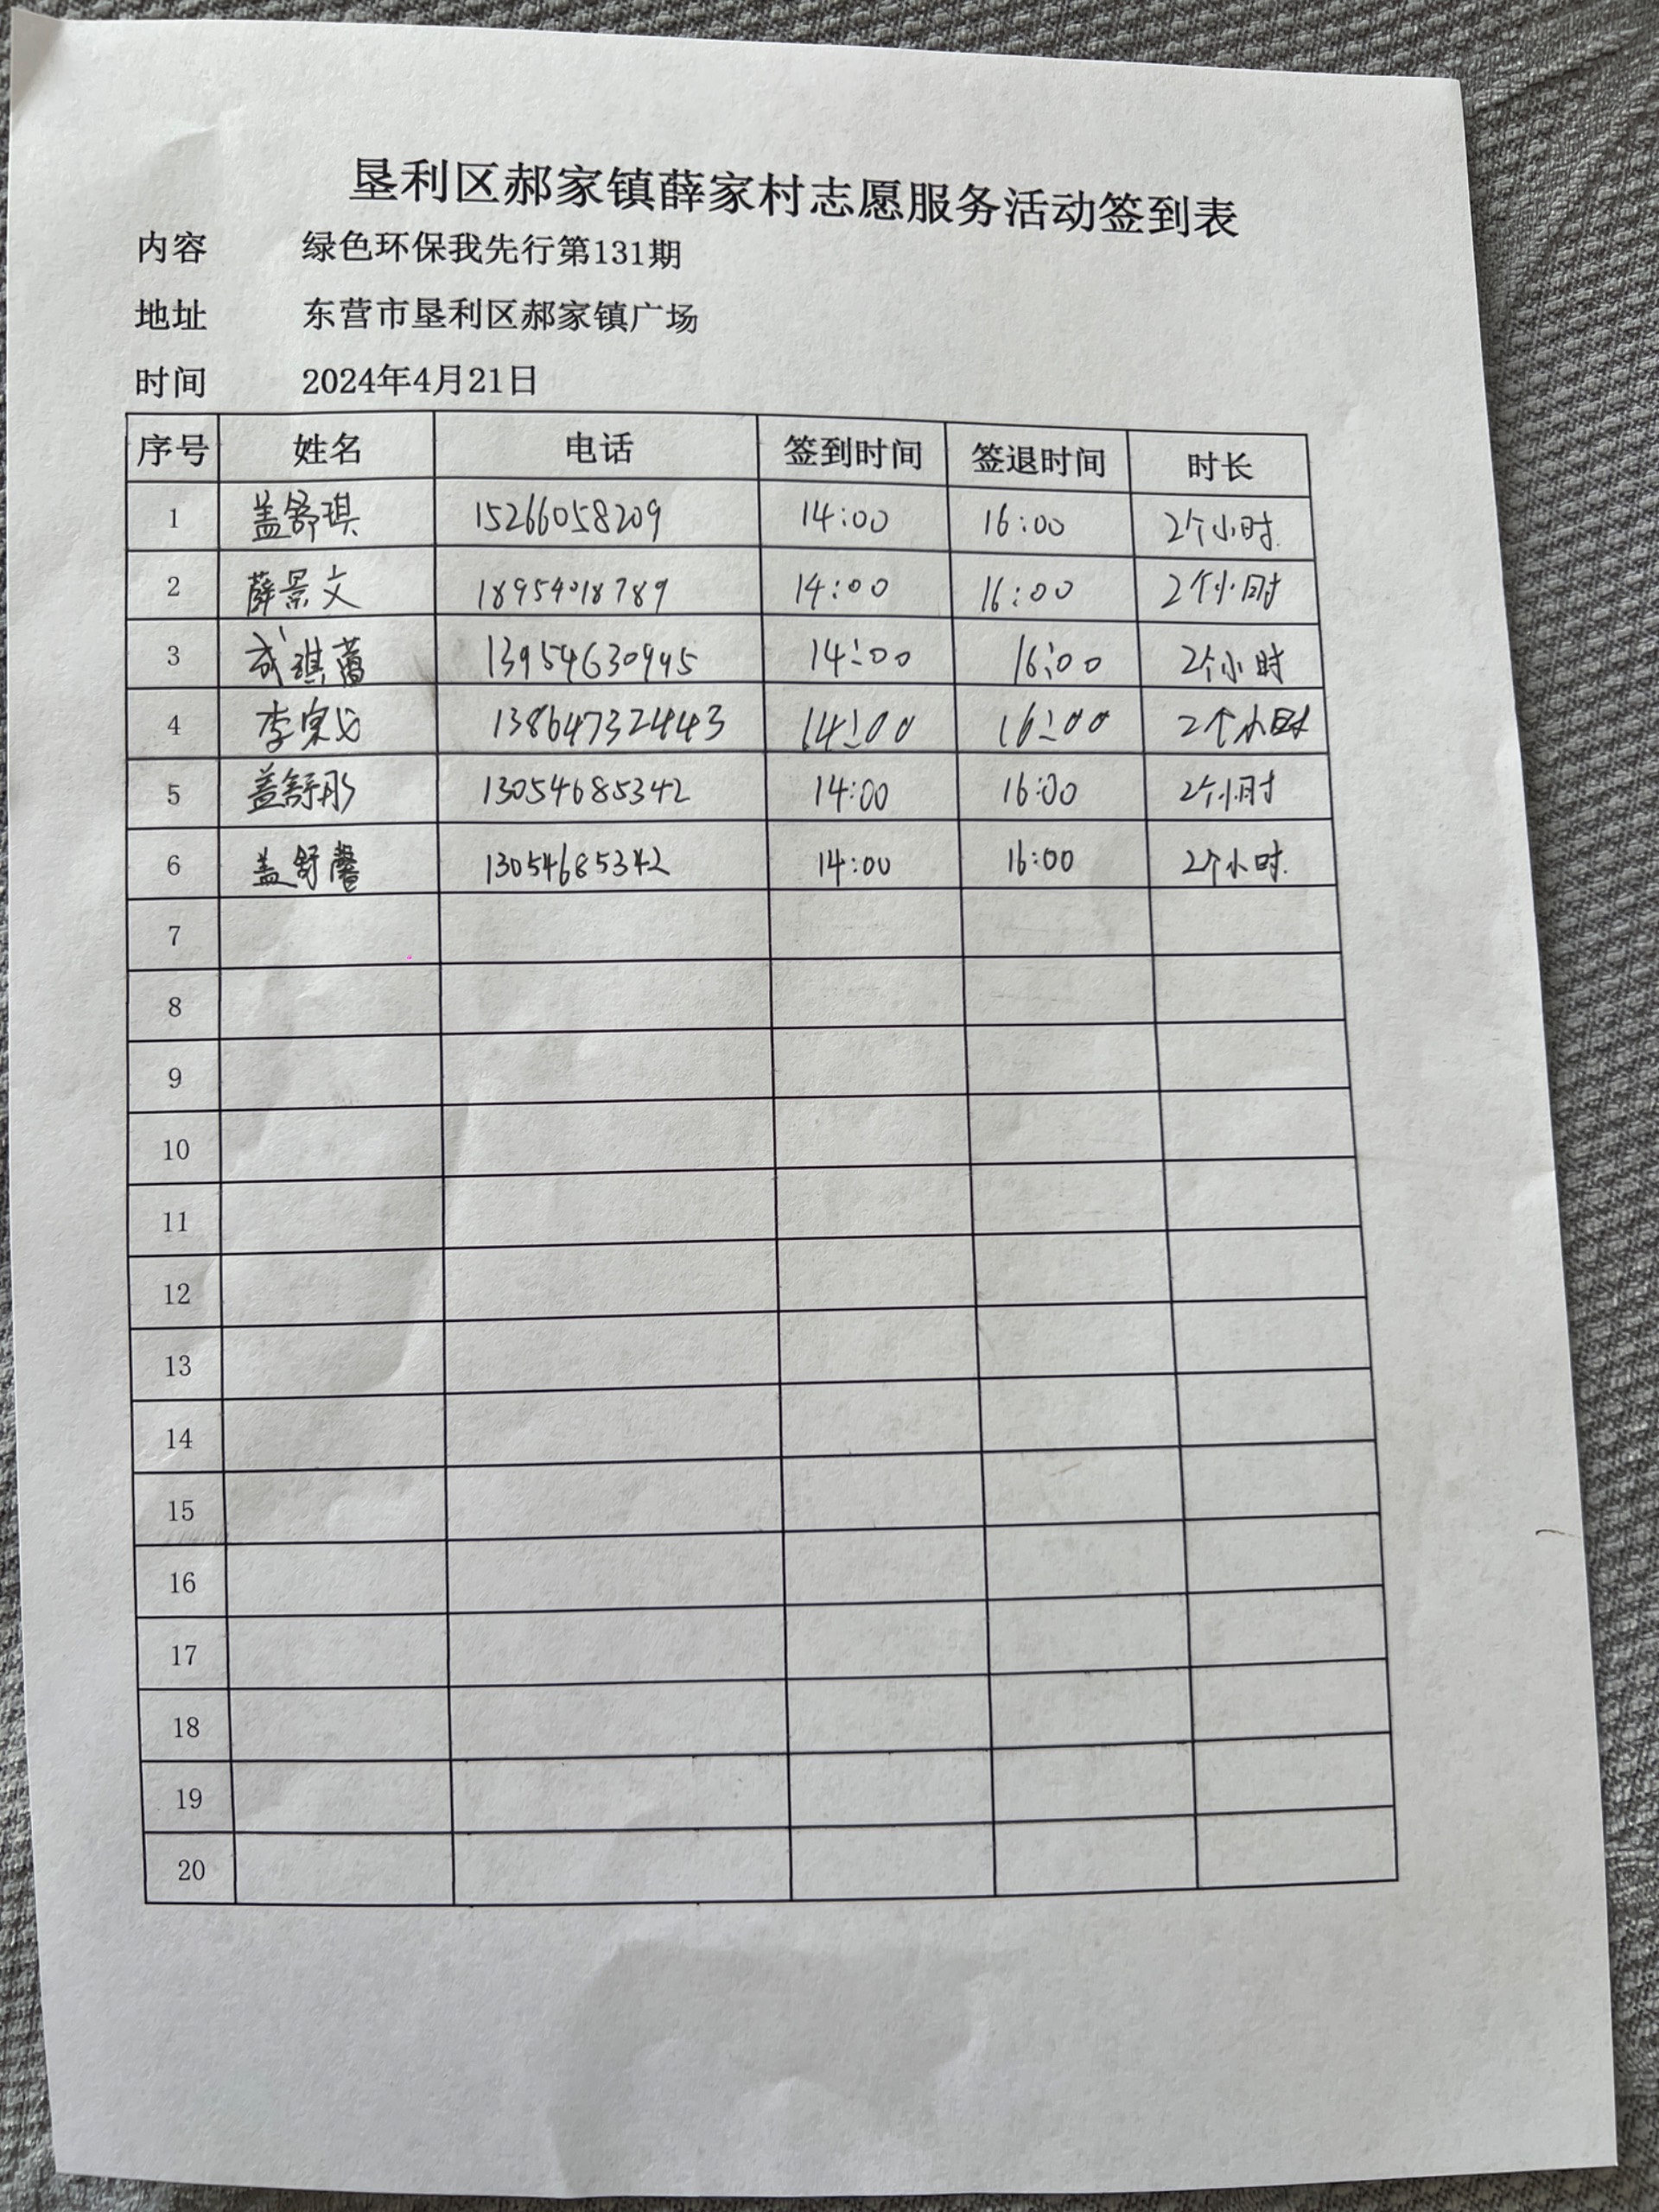 垦利区郝家镇薛家村志愿服务活动签到表
内容 绿色环保我先行第131期
地址 东营市垦利区郝家镇广场
时间 2024年4月21日
序号 姓名 电话 签到时间 签退时间 时长
1 盖舒琪 15266058209 14:00 16:00 2个小时.
2 薛景文 18954018789 14:00 16:00 2个小时
3 14:00 16:00 2个小时
4 13864732443 14:00 16:00 2个小时
5 盖舒彤 13054685342 14:00 16:00 2个小时
6 盖舒馨 13054685342 14:00 16:00 2个小时.
7
8
9
10
11
12
13
14
15
16
17
18
19
20